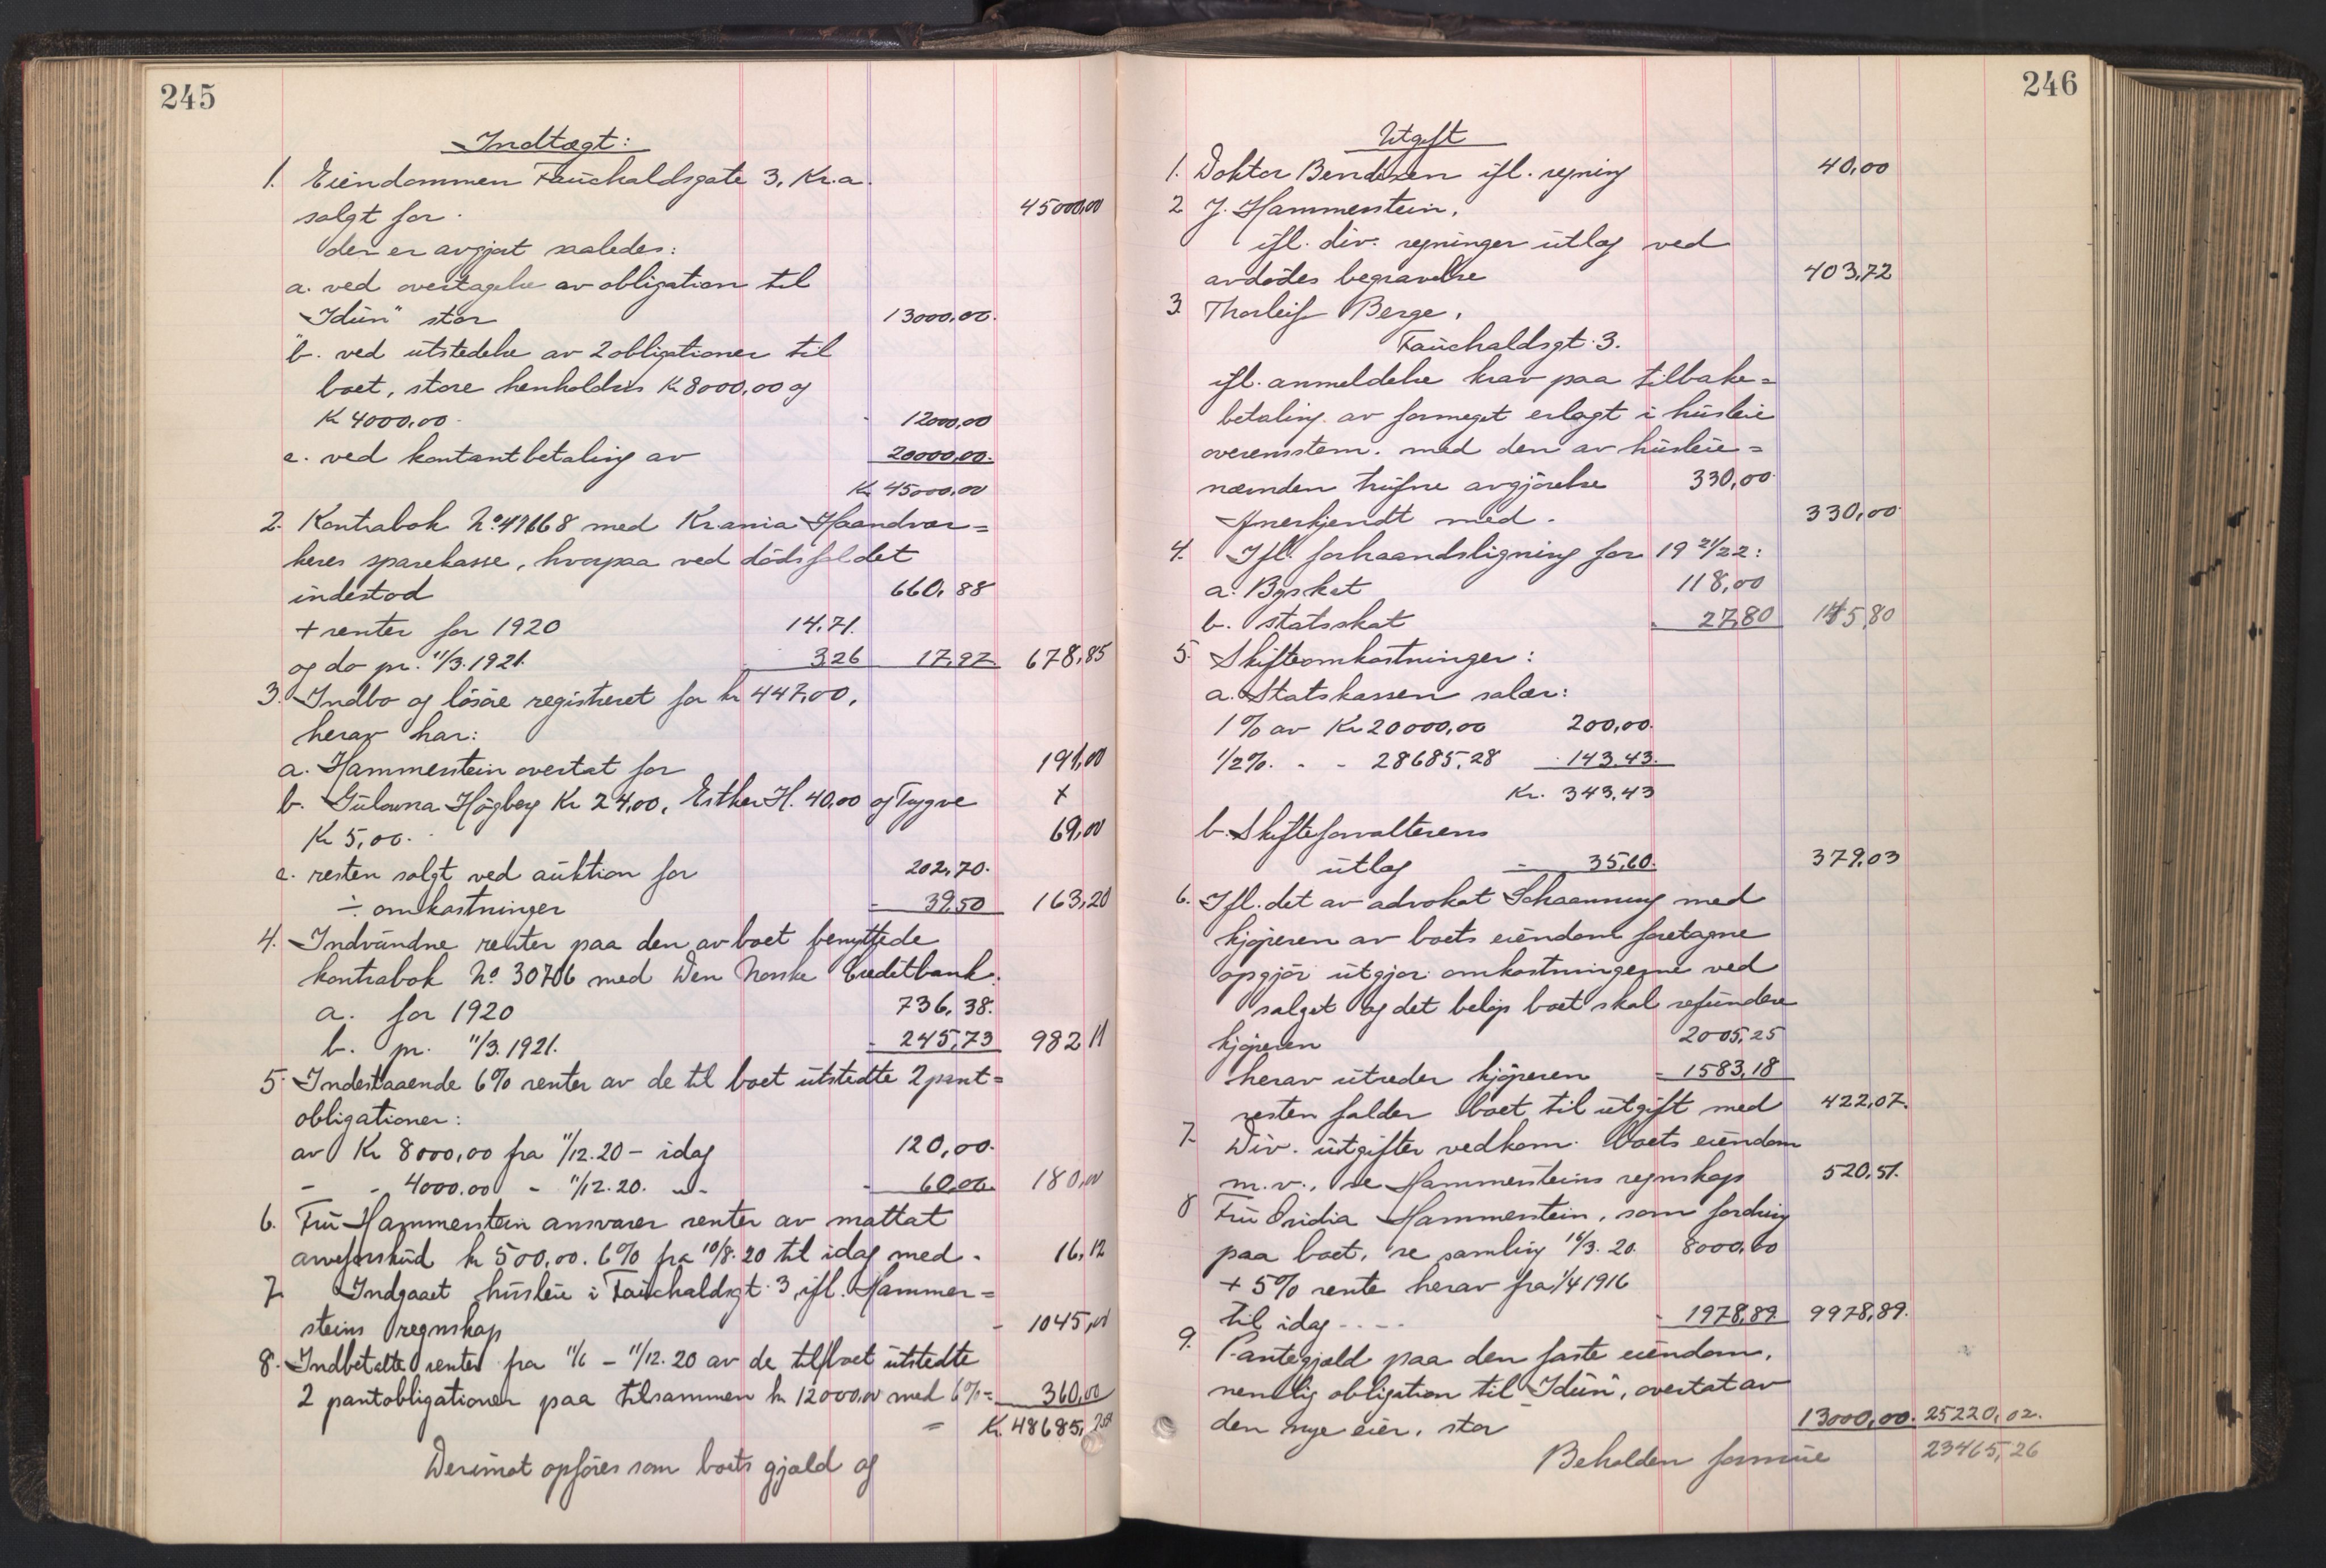 245
Indtægt:
1. Eiendommen Fauchaldsgate 3, Kr.a.
solgt for. 45000,00
den er avgjort saaledes:
a. ved overtagelse av obligation til
"Idun" stor 13000,00.
b. ved utstedelse av 2 obligationer til
boet, store henholdsvis Kr 8000,00 og
Kr 4000,00. - 12000,00
c. ved kontantbetaling av 20000,00.
Kr. 45000,00
2. Kontrabok No. 49668 med Kr.ania Haandvær=
keres sparekasse, hvorpaa ved dödsfaldet
indestod 660,88
+ renter for 1920 14,71.
og do pr. 11/3.1921. 3,26 17,97 678,85
3. Indbo og lösöre registreret for kr 447,00,
herav har:
a. Hammerstein overtat for 191,00
b. Gulowna Högberg Kr 24,00, Esther H. 40,00 og Trygve +
Kr 5,00. 69,00
c. resten solgt ved auktion for 202,70.
÷ omkostninger - 39,50 163,20
4. Indvundne renter paa den av boet benyttede
kontrabok No. 30706 med Den Norske Creditbank:
a. for 1920 736,38.
b. pr. 11/3.1921. - 245,73 982 11
5. Indestaaende 6% renter av de til boet utstedte 2 pant=
obligationer:
av Kr 8000,00 fra 11/12.20 - idag 120,00.
- - 4000.00 - 11/12.20. -"- - 60,00. 180,00
6. Fru Hammerstein ansvarer renter av mottat
arveforskud kr 500,00. 6% fra 10/8.20 til idag med - 16,12
7. Indgaaet husleie i Fauchaldsgt. 3, ifl. Hammer=
steins regnskap - 1045,00
8. Indbetalte renter fra 11/6 - 11/12.20 av de til boet utstedte
2 pantobligationer paa tilsammen kr 12000,00 med 6% = 360,00
= Kr. 48685,28
Derimot opföres som boets gjæld og
246
Utgift
1. Doktor Bendixen ifl. regning 40,00
2 J. Hammerstein,
ifl. div. regninger utlæg ved
avdödes begravelse 403,72
3. Thorleif Berge,
Fauchaldsgt. 3.
ifl. anmeldelse krav paa tilbake=
betaling av formeget erlagt i husleie
overensstem. med den av husleie=
nævnden trufne avgjörelse 330,00
Anerkjendt med. 330,00
4. Ifl. forhaandsligning for 19 21/22:
a. Byskat 118,00
b. statsskat - 27,80 145,80
5. Skifteomkostninger:
a. Statskassen salær:
1% av Kr 20000,00 200,00.
1/2%. - - 28685,28 - 143,43.
Kr. 343,43
b. Skifteforvalterens
utlæg - 35,60. 379,03
6. Ifl. det av advokat Schaanning med
kjöperen av boets eiendom foretagne
opgjör utgjör omkostningerne ved
salget og det belöp boet skal refundere
kjöperen 2005,25
herav utreder kjöperen - 1583,18
resten falder boet til utgift med 422,07.
7. Div. utgifter vedkom. boets eiendom
m.v., se Hammersteins regnskap 520,51.
8 Fru Ovidia Hammerstein, som fordring
paa boet, se samling 16/3.20. 8000,00
+ 5% rente herav fra 1/4 1916
til idag - - - - - 1978,89 9978,89.
9. Pantegjæld paa den faste eiendom,
nemlig obligation til "Idun", overtat av
den nye eier, stor 13000,00. 25220,02.
Beholden formue 23465,26